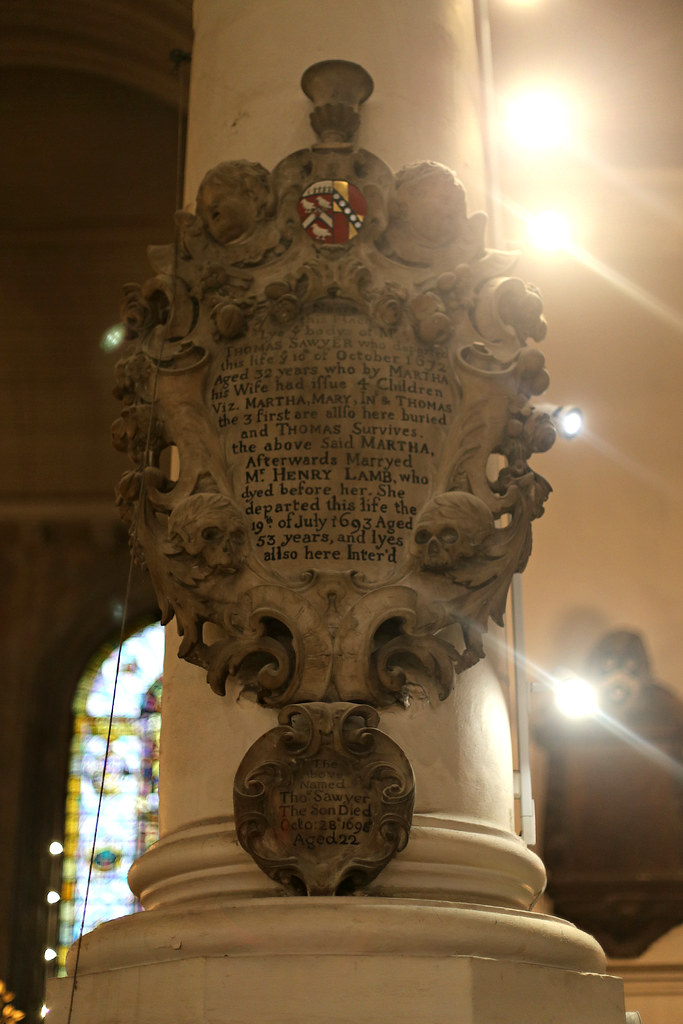 this
Lyes ye body of Mr
THOMAS SAWYER who departed
this life ye 10th of October 1692
Aged 32 years who by MARTHA
his Wife had issue 4 Children
Viz. MARTHA, MARY, In & THOMAS
the 3 first are allso here buried
and THOMAS Survives.
the above Said MARTHA,
Afterwards Marryed
Mr. HENRY LAMB, who
dyed before her. She
departed this life the
19th of July 1693 Aged
53 years, and lyes
allso here Inter'd
The
above
Named
Tho: Sawyer
The Son Died
Octo: 28th 1696
Aged 22